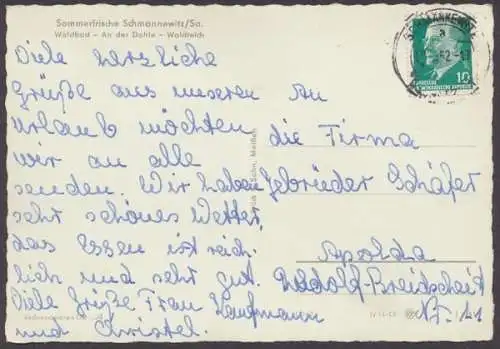 Sommerfrische Schmannewitz/Sa.
Waldbad - An der Dahle - Waldteich
Viele herzliche
Grüße aus unserem
Urlaub möchten
wir an alle
senden. Wir haben
sehr schönes Wetter,
das Essen ist reich-
lich und sehr gut.
Viele Grüße Frau Kaufmann
und Christel.
An
die Firma
Gebrüder Schäfer
Apolda
Rudolf-Breidscheit
10
DEUTSCHE
DEMOKRATISCHE REPUBLIK